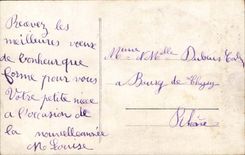 Recevez les
meilleures vœux
de bonheur que
forme pour vous
Votre petite nièce
a l'occasion de
la nouvelle année
M Louise
Mme & Melle Dubuis
a Bourg de Thizy
Rhône